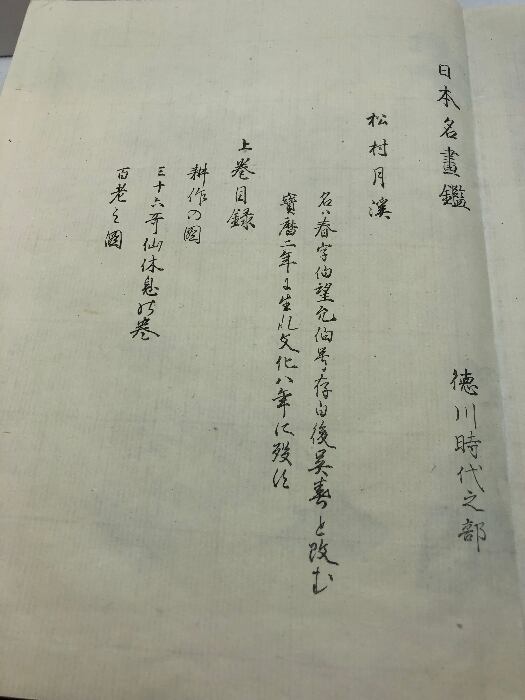 日本名畫鑑
徳川時代之部
松村月溪
名ハ春字伯望允伯号存白後呉春と改む
寳暦二年に生れ文化八年に歿す
上巻目録
耕作の圖
三十六哥仙休息の巻
百老之圖